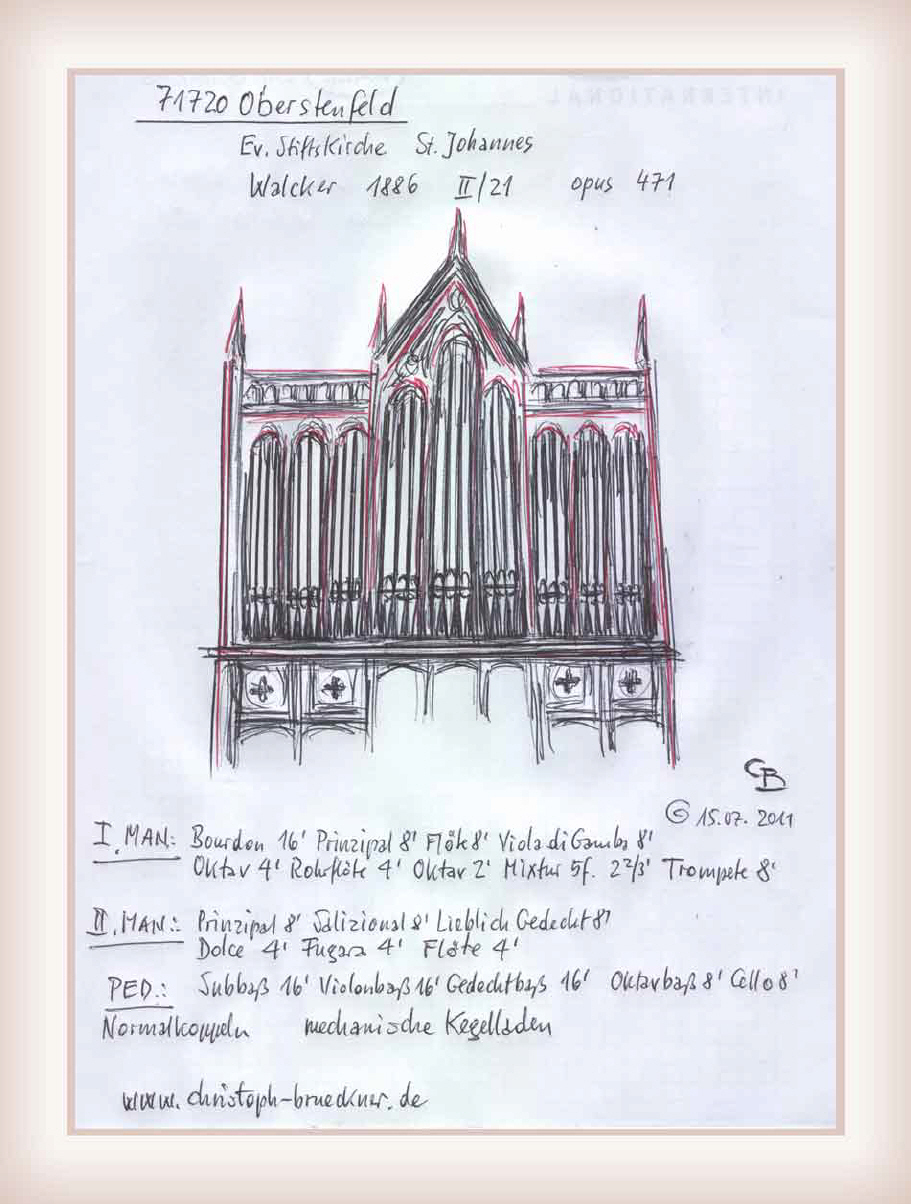 71720 Oberstenfeld
Ev. Stiftskirche St. Johannes
Walcker 1886 II/21 opus 471
CB
© 15.07.2011
I. MAN.: Bourdon 16' Prinzipal 8' Flöte 8' Viola di Gamba 8'
Oktav 4' Rohrflöte 4' Oktav 2' Mixtur 5f. 2 2/3' Trompete 8'
II. MAN.: Prinzipal 8' Salizional 8' Lieblich Gedeckt 8'
Dolce 4' Fugara 4' Flöte 4'
PED.: Subbaß 16' Violonbaß 16' Gedecktbaß 16' Oktavbaß 8' Cello 8'
Normalkoppeln mechanische Kegelladen
www.christoph-brueckner.de
INTERNATIONAL